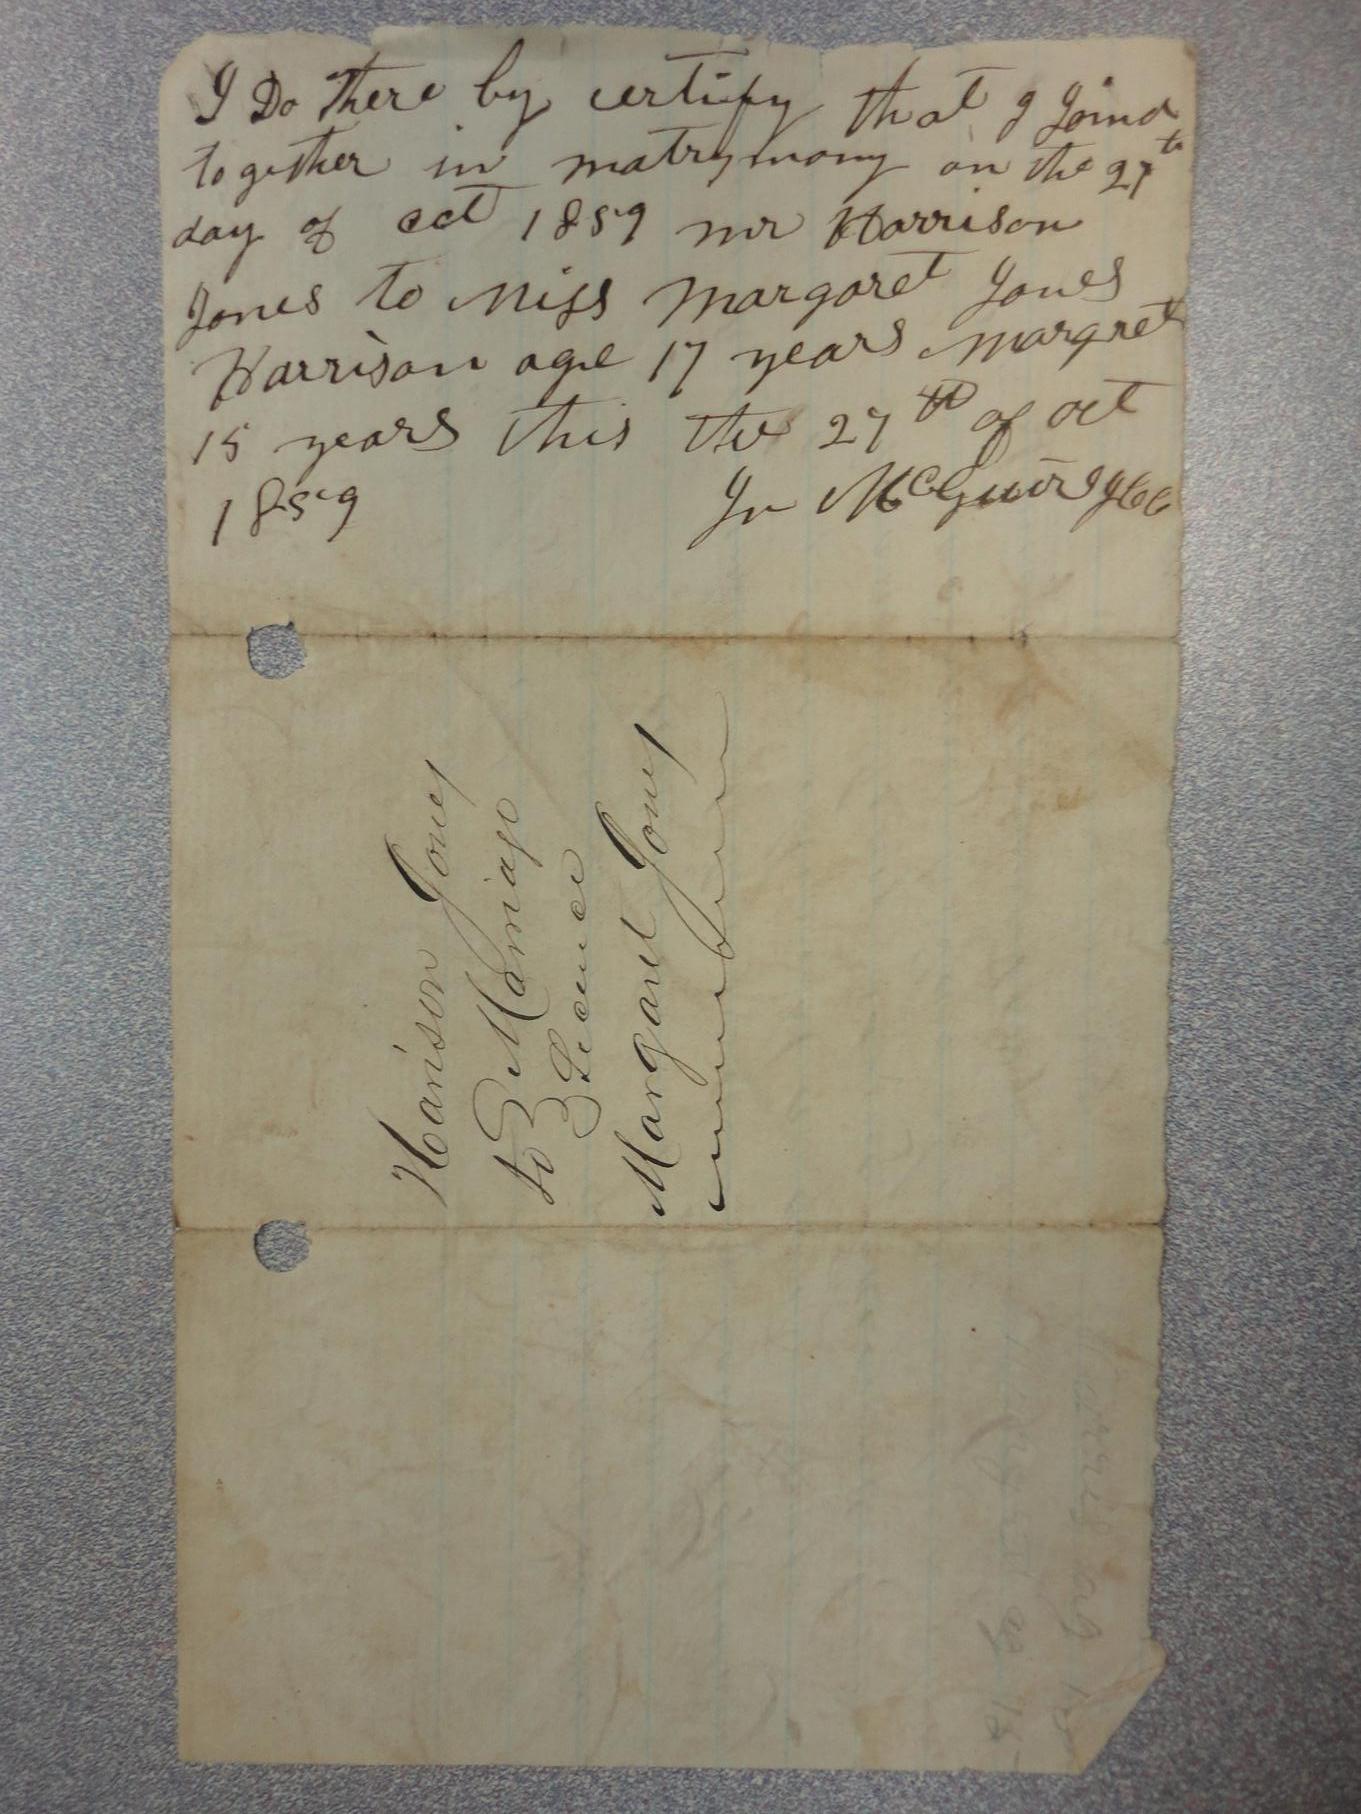 I Do there by certify that I Joind
together in matrymony on the 27th
day of oct 1859 mr Harrison
Jones to Miss Margaret Jones
Harrison age 17 years Margret
15 years this the 27th of oct
1859 Jn McGuire
Harrison Jones
to Marriage
Licence
Margaret Jones